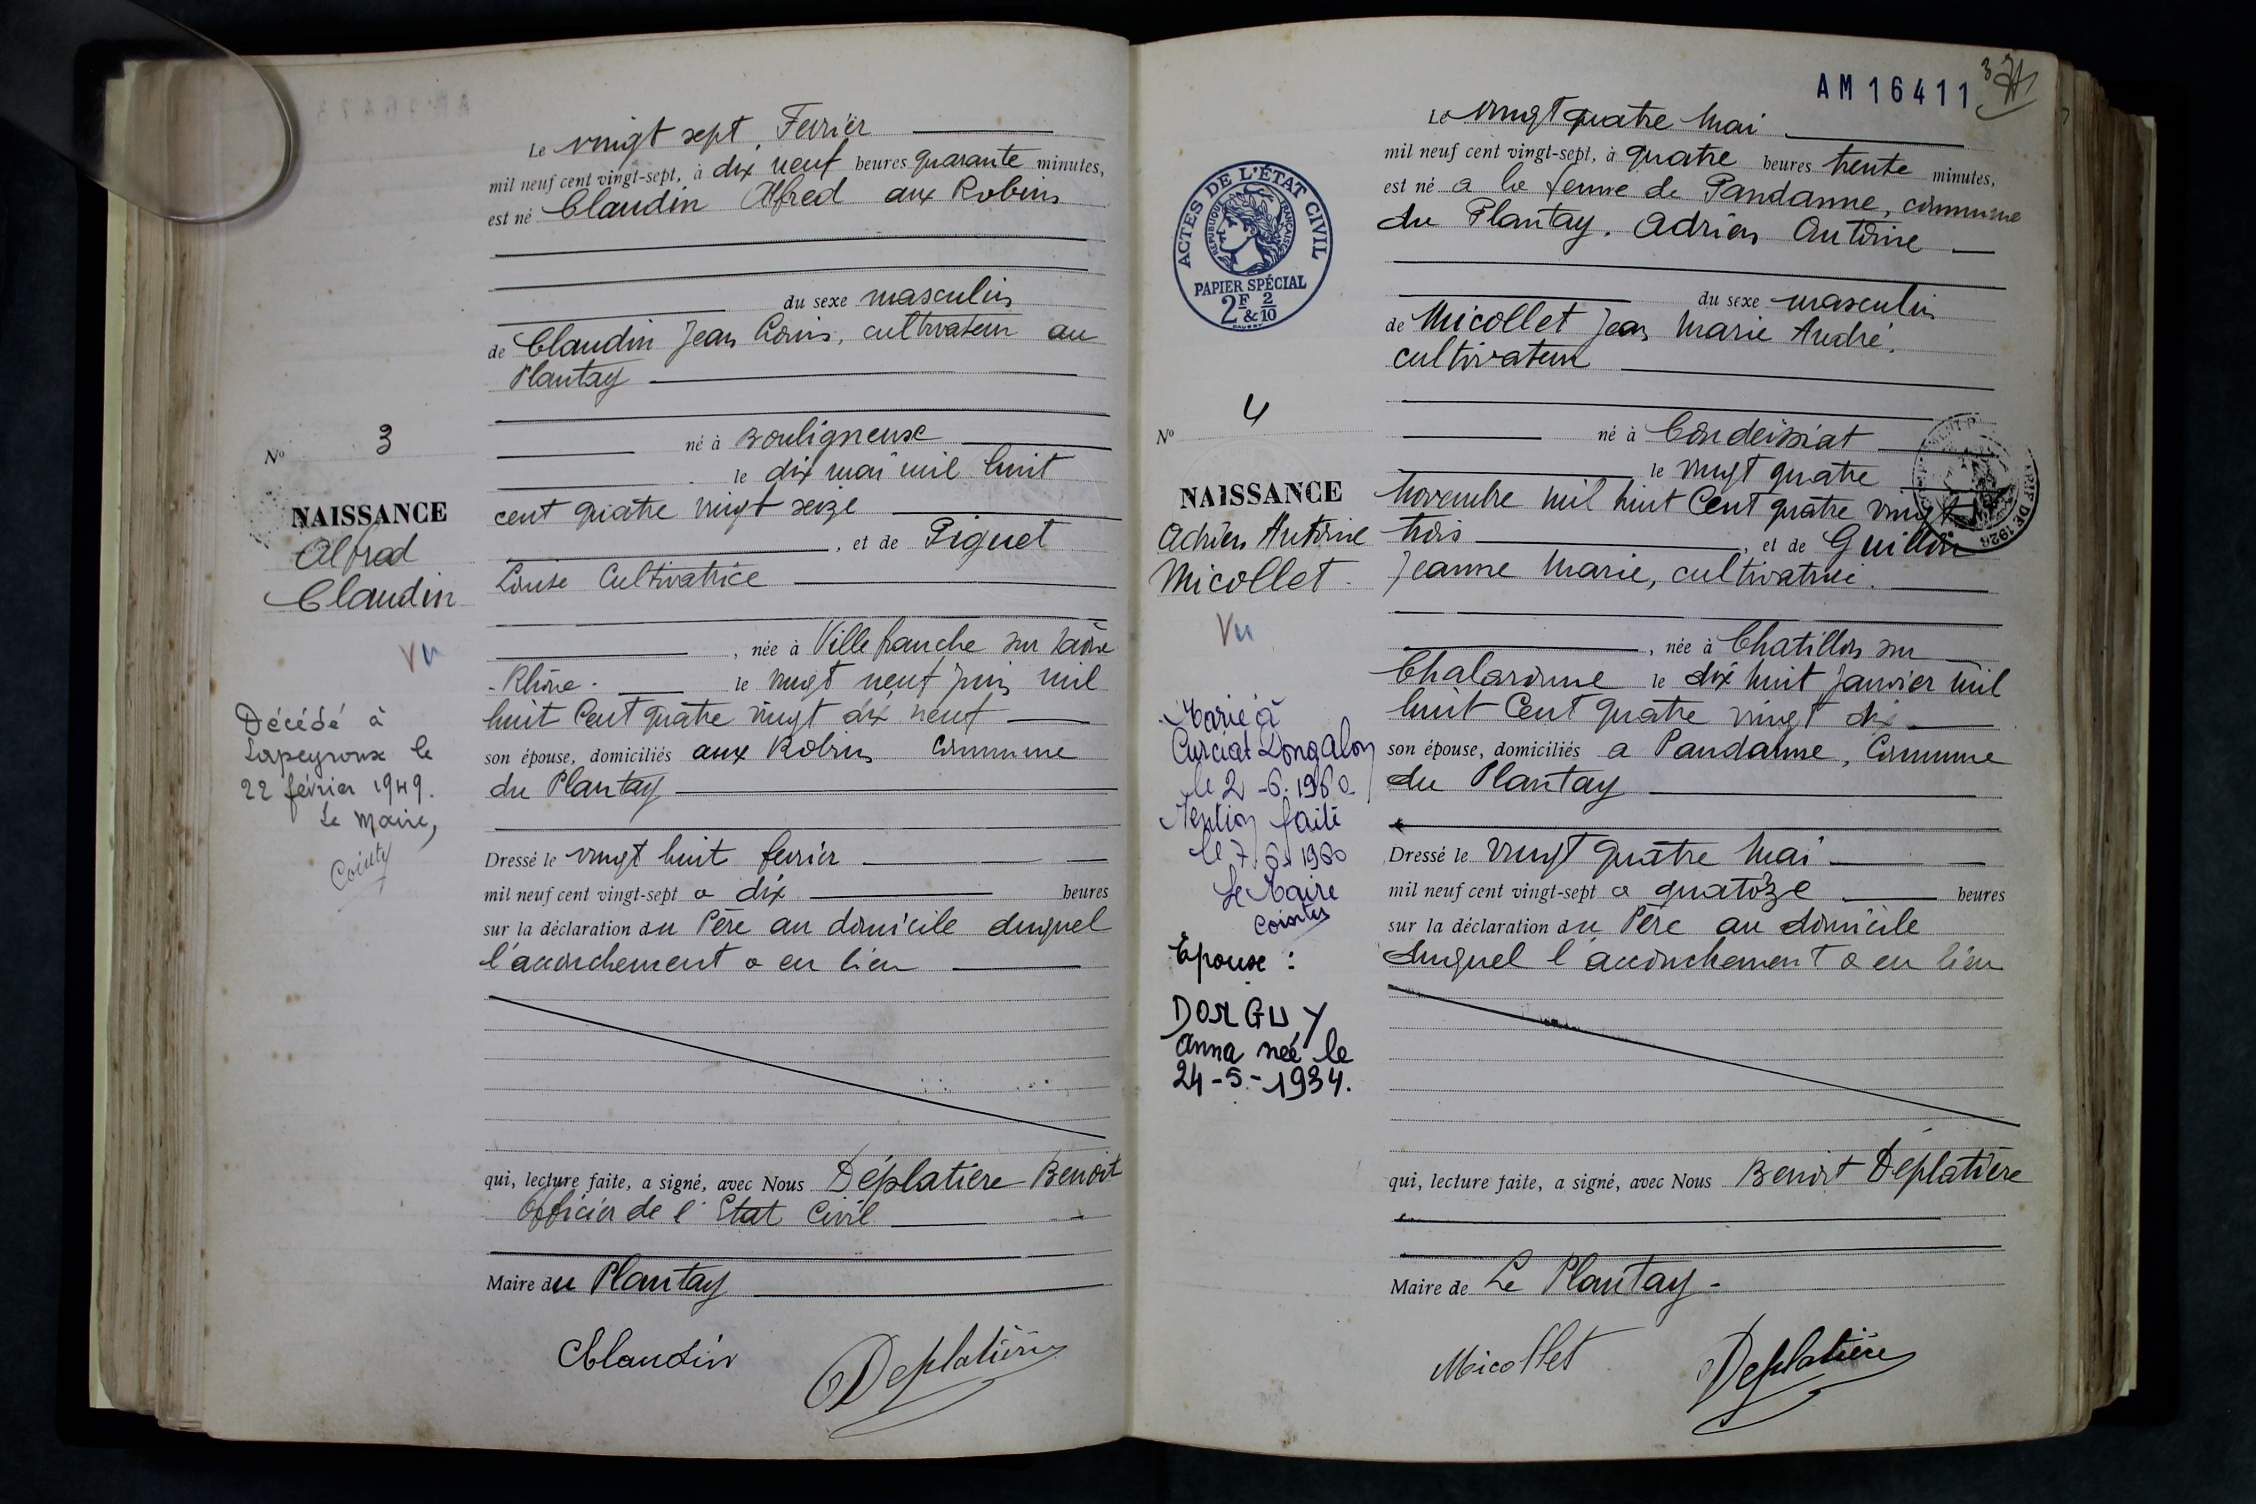 Le vingt sept Fevrier
mil neuf cent vingt-sept, à dix neuf heures quarante minutes,
est né Claudin Alfred aux Robins
du sexe masculin
de Claudin Jean Louis, cultivateur au
Plantay
né à Bouligneux
le dix mai mil huit
cent quatre vingt seize
, et de Piguet
Louise Cultivatrice
, née à Villefranche sur Saône
- Rhône - le vingt neuf Juin mil
huit Cent quatre vingt dix neuf
son épouse, domiciliés aux Robins Commune
du Plantay
Dressé le vingt huit fevrier
mil neuf cent vingt-sept a dix heures
sur la déclaration du Père au domicile duquel
l'accouchement a eu lieu
qui, lecture faite, a signé, avec Nous Déplatière Benoit
Officier de l'Etat Civil
Maire du Plantay
Claudin Deplatière
No 3
NAISSANCE
Alfred
Claudin
Vu
Décédé à
Lapeyrouse le
22 février 1949.
Le Maire,
AM16411
Le vingt quatre Mai
mil neuf cent vingt-sept, à quatre heures trente minutes,
est né a la ferme de Pandanne, commune
du Plantay. Adrien Antoine
du sexe masculin
de Micollet Jean Marie André,
cultivateur
né à Condeissiat
le vingt quatre
Novembre mil huit Cent quatre vingt
trois , et de Guillon
Jeanne Marie, cultivatrice.
, née à Chatillon sur
Chalaronne le dix huit Janvier mil
huit Cent quatre vingt dix
son épouse, domiciliés a Pandanne, Commune
du Plantay
Dressé le vingt quatre Mai
mil neuf cent vingt-sept a quatorze heures
sur la déclaration du Père au domicile
duquel l'accouchement a eu lieu
qui, lecture faite, a signé, avec Nous Benoit Déplatière
Maire de Le Plantay -
Micollet Deplatière
ACTES DE L'ÉTAT CIVIL
RÉPUBLIQUE FRANÇAISE
PAPIER SPÉCIAL
2F & 2/10
No 4
NAISSANCE
Adrien Antoine
Micollet
Vu
Marié à
Curciat Dongalon
le 2-6-1960
Mention faite
le 7.6.1960
Le Maire
Épouse :
DORGUY
anna née le
24-5-1934.